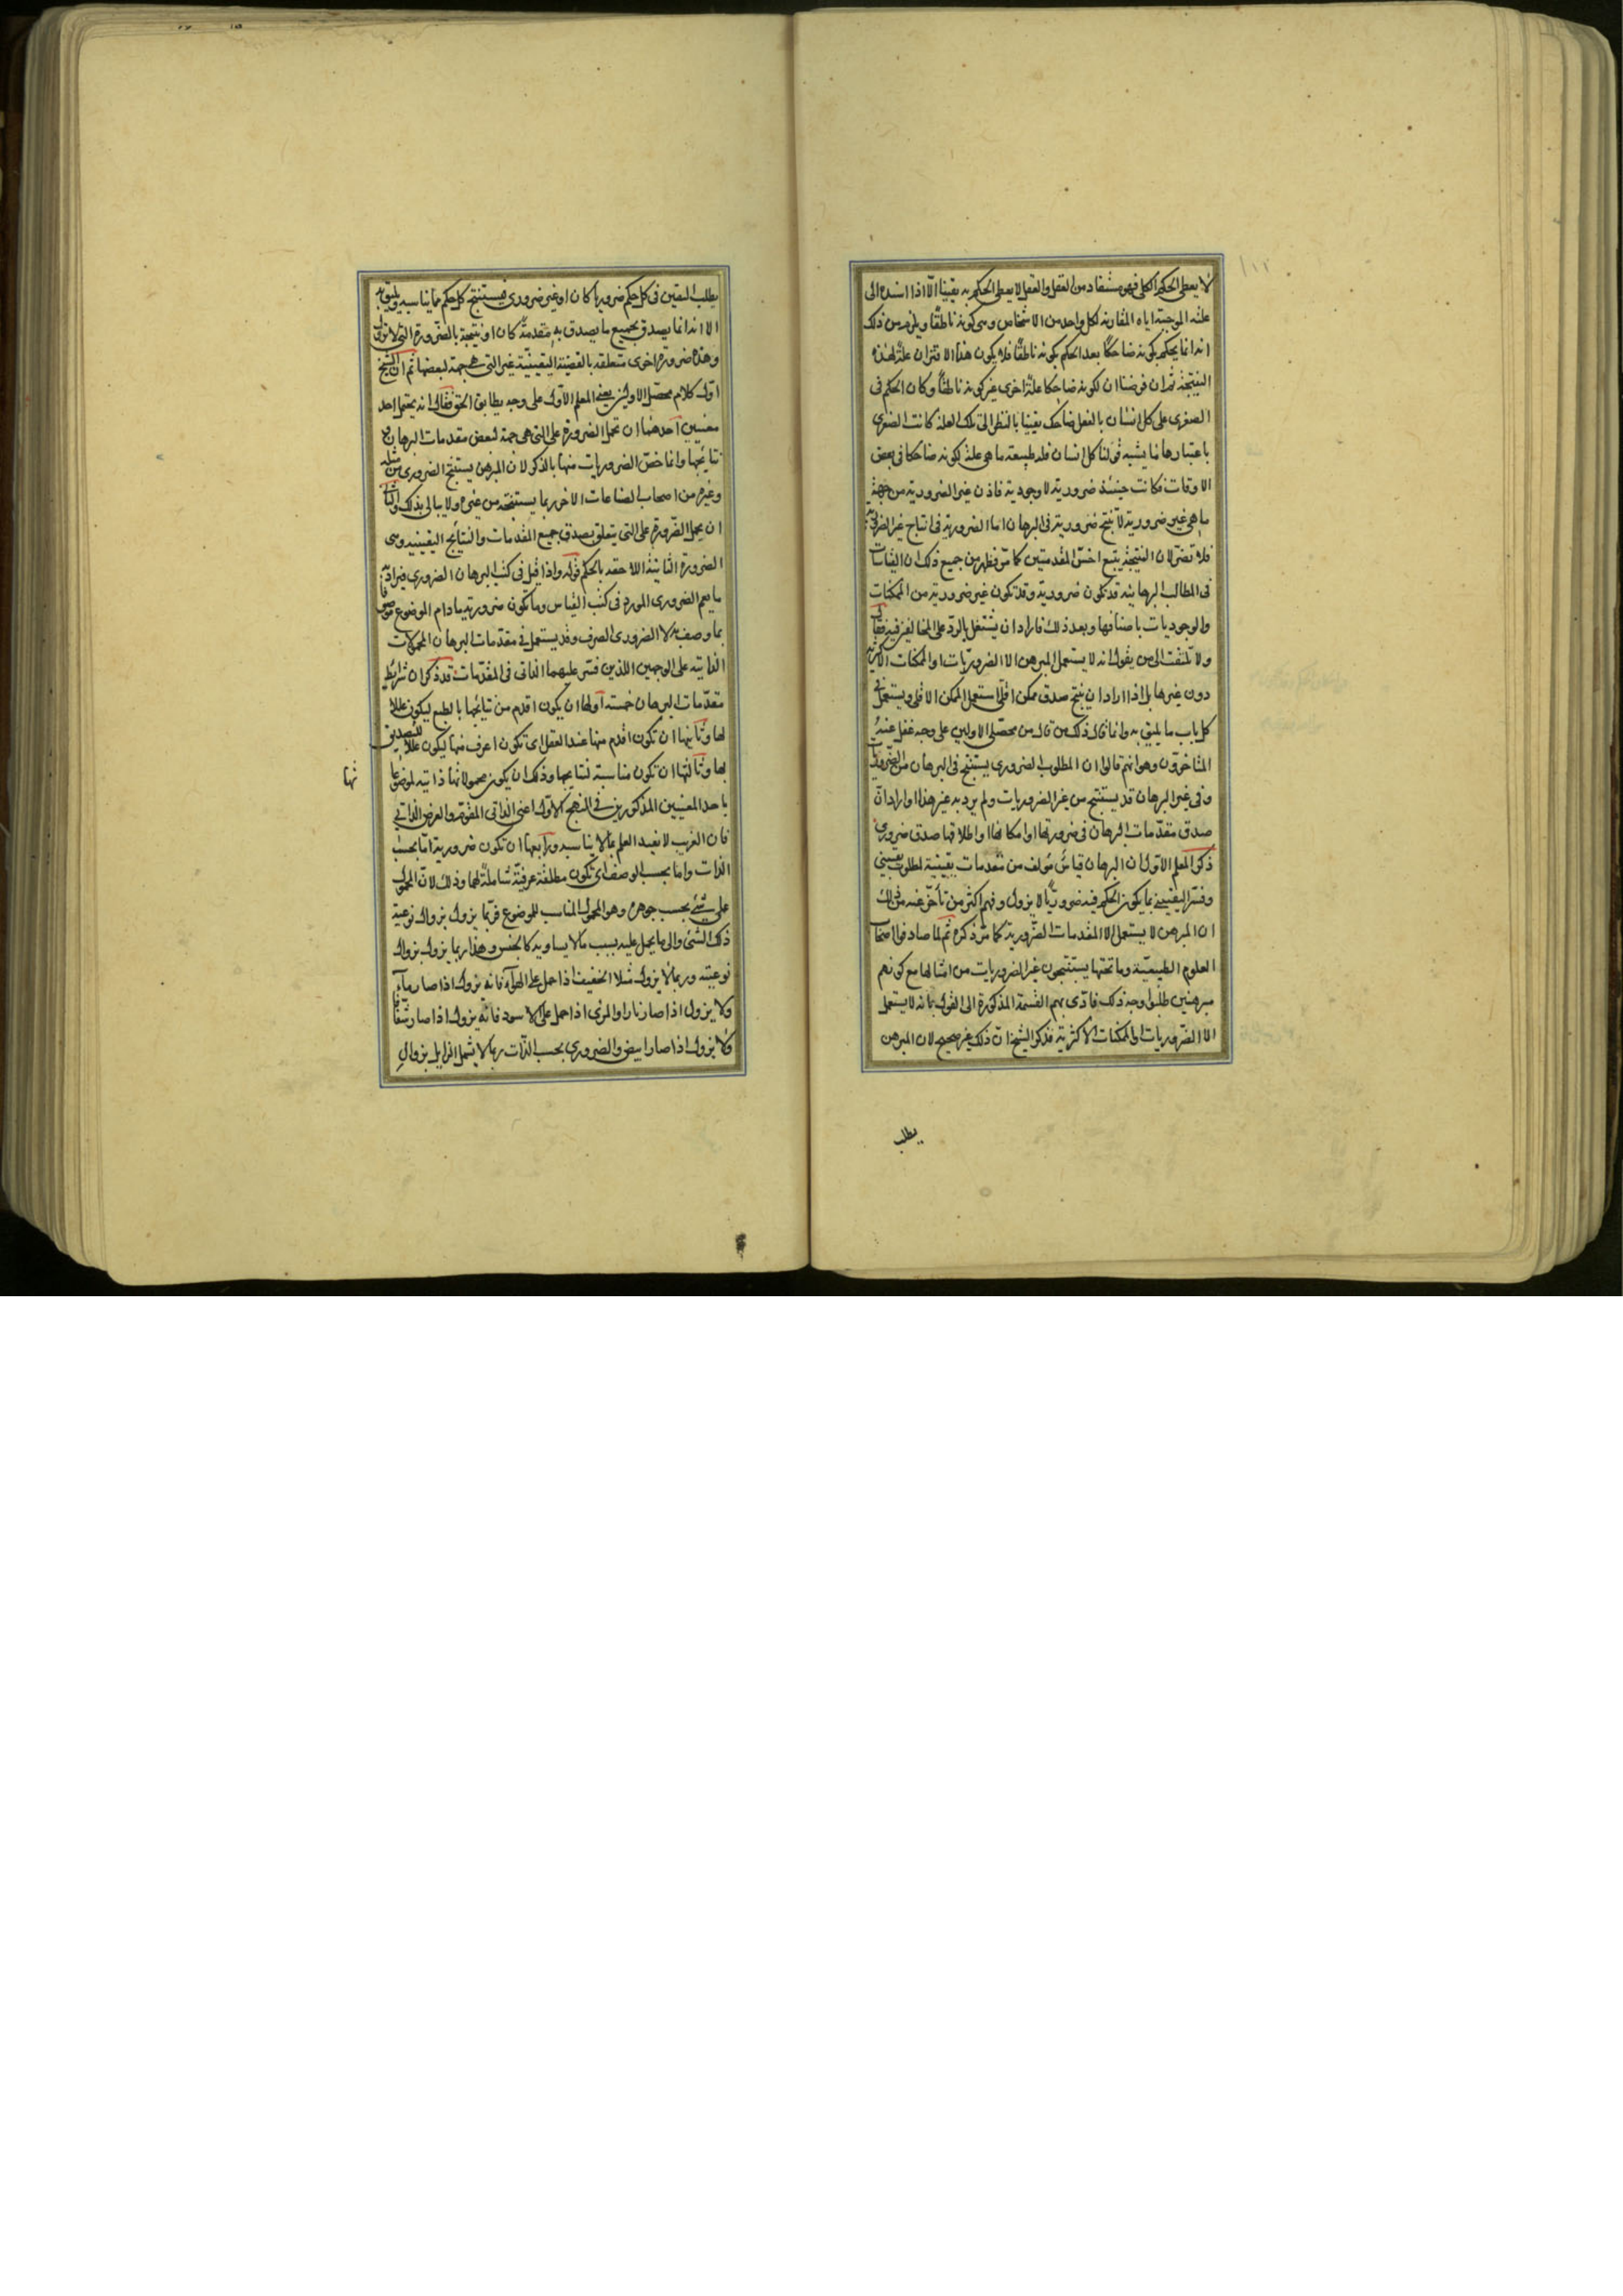 لا يعطى الحكم الكلى فهو مستفاد من العقل والعقل لا يعطى الحكم به يقينا الا اذا اسنده الى
علته الموجبة اياه المقارنة لكل واحد من الاشخاص وهى كونه ناطقا ويلزم من ذلك
انه انما يحكم بكونه ضاحكا بعد الحكم بكونه ناطقا فلا يكون هذا الاقتران علة لهذه
النتيجة ثم ان فرضنا ان لكونه ضاحكا علة اخرى غير كونه ناطقا وكان الحكم فى
الصغرى على كل انسان بالفعل ضاحك يقينيا بالنظر الى تلك العلة كانت الصغرى
باعتبارها مما يشبه قولنا كل انسان فله طبيعة ما هى علة كونه ضاحكا فى بعض
الاوقات فكانت حينئذ ضرورية لا وجودية فاذن غير الضرورية من جهة
ما هى غير ضرورية لا تنتج ضرورية فى البرهان اما الضرورية فى انتاج غير الضرورية
فلا تضر لان النتيجة يتبع اخس المقدمتين كما مر فظهر من جميع ذلك ان القياسات
فى المطالب البرهانية قد تكون ضرورية وقد تكون غير ضرورية من الممكنات
والوجوديات باصنافها وبعد ذلك فاراد ان يشتغل بالرد على المخالفين فيه فقال
ولا تلتفت الى من يقول انه لا يستعمل المبرهن الا الضروريات او الممكنات الاكثرية
دون غيرها بل اذا اراد ان ينتج صدق ممكن اقلى استعمل الممكن الاقلى ويستعمل فى
كل باب ما يليق به وانما قال ذلك من قال من محصلى الاولين على وجه غفل عنه
المتاخرون وهو انهم قالوا ان المطلوب الضرورى يستنتج فى البرهان من الضروريات
وفى غير البرهان قد يستنتج من غير الضروريات ولم يرد به غير هذا او اراد ان
صدق مقدمات البرهان فى ضرورتها او امكانها او اطلاقها صدق ضرورى
ذكر المعلم الاول ان البرهان قياس مؤلف من مقدمات يقينية لمطلوب يقينى
وفسر اليقينى بما يكون الحكم فيه ضروريا لا يزول وفهم اكثر من تأخر عنه من ذلك
ان المبرهن لا يستعمل الا المقدمات الضرورية كما مر ذكره ثم لما صادفوا اصحاب
العلوم الطبيعية وما تحتها يستنتجون غير الضروريات من امثالها مع كونهم
مبرهنين طلبوا وجه ذلك فادى بهم القسمة المذكورة الى القول بانه لا يستعمل
الا الضروريات او الممكنات الاكثرية فذكر الشيخ ان ذلك غير صحيح لان المبرهن
يطلب
يطلب اليقين فى كل حكم ضروريا كان او غير ضرورى فيستنتج كل حكم مما يناسبه ويليق به
الا انه انما يصدق بجميع ما يصدق به مقدمة كان او نتيجة بالضرورة التى لا تزول
وهذه ضرورة اخرى متعلقة بالقضية اليقينية غير التى هى جهة لبعضها ثم ان الشيخ
اول كلام محصلى الاولين يعنى المعلم الاول على وجه يطابق الحق فقال انه يحتمل احد
معنيين احدهما ان تحمل الضرورة على التى هى جهة لبعض مقدمات البرهان و
نتائجها وانما خص الضروريات منها بالذكر لان المبرهن يستنتج الضرورى من مثله
وغيره من اصحاب الصناعات الاخر ربما يستنتجه من غيره ولا يبالى بذلك والثانى
ان يحمل الضرورة على التى يتعلق بصدق جميع المقدمات والنتائج اليقينية وهى
الضرورة الثانية اللاحقة بالحكم قوله واذا قيل فى كتب البرهان الضرورى فيراد به
ما يعم الضرورى المورد فى كتب القياس وما تكون ضرورية ما دام الموضوع موصوفا
بما وصف به لا الضرورى الصرف وقد يستعمل فى مقدمات البرهان المحمولات
الذاتية على الوجهين اللذين فسر عليهما الذاتى فى المقدمات قد ذكر ان شرائط
مقدمات البرهان خمسة اولها ان يكون اقدم من نتائجها بالطبع ليكون عللا
لها وثانيها ان تكون اقدم منها عند العقل اى تكون اعرف منها ليكون عللا للتصديق
بها وثالثها ان تكون مناسبة لنتايجها وذلك ان يكون محمولاتها ذاتية لموضوعا
تها
باحد المعنيين المذكورين فى النهج الاول اعنى الذاتى المقوم والعرض الذاتى
فان الغريب لا يفيد العلم بما لا يناسبه ورابعها ان تكون ضرورية اما بحسب
الذات واما بحسب الوصف اى تكون مطلقة عرفية شاملة لهما وذلك لان المحمول
على شئ بحسب جوهره وهو المحمول المناسب للموضوع فربما يزول بزوال نوعية
ذلك الشئ والى ما يحمل عليه بسبب ما لا يساويه كالجنس وهذا ربما يزول بزوال
نوعيته وربما لا يزول مثلا الخفيف اذا حمل على الهوآء فانه يزول اذا صار مآء
ولا يزول اذا صار نارا والمرئى اذا حمل على الاسود فانه يزول اذا صار شفافا
ولا يزول اذا صار ابيض والضرورى بحسب الذات ربما لا يشمل الزايل بزوال